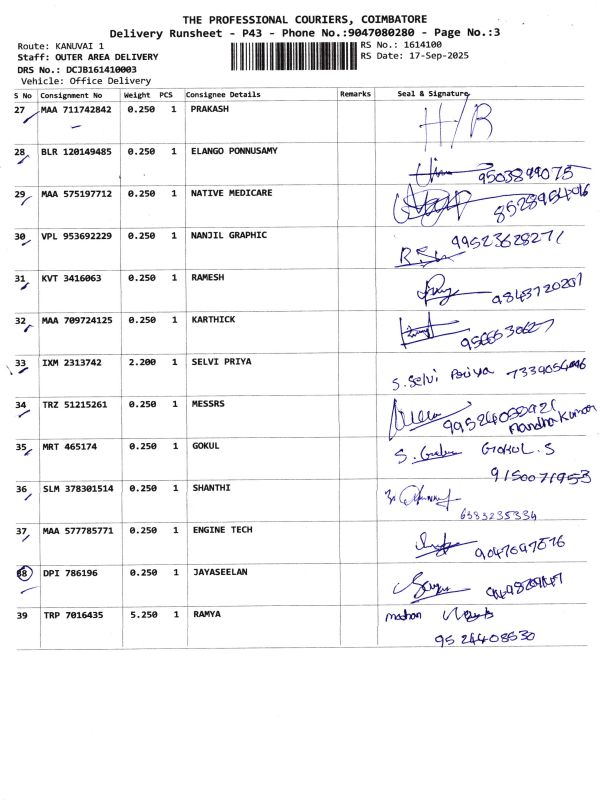 THE PROFESSIONAL COURIERS, COIMBATORE
Delivery Runsheet - P43 - Phone No.:9047080280 - Page No.:3
Route: KANUVAI 1
RS No.: 1614100
Staff: OUTER AREA DELIVERY
RS Date: 17-Sep-2025
DRS No.: DCJB161410003
Vehicle: Office Delivery
S No Consignment No Weight PCS Consignee Details Remarks Seal & Signature
27 MAA 711742842 0.250 1 PRAKASH H/R
28 BLR 120149485 0.250 1 ELANGO PONNUSAMY
9503899075
29 MAA 575197712 0.250 1 NATIVE MEDICARE
30 VPL 953692229 0.250 1 NANJIL GRAPHIC
31 KVT 3416063 0.250 1 RAMESH
9843720207
32 MAA 709724125 0.250 1 KARTHICK
33 IXM 2313742 2.200 1 SELVI PRIYA
S. Selvi Priya
34 TRZ 51215261 0.250 1 MESSRS
Nandha Kumar
35 MRT 465174 0.250 1 GOKUL
GOKUL. S
9150071953
36 SLM 378301514 0.250 1 SHANTHI
6383235334
37 MAA 577785771 0.250 1 ENGINE TECH
38 DPI 786196 0.250 1 JAYASEELAN
39 TRP 7016435 5.250 1 RAMYA
madhan
9524408530